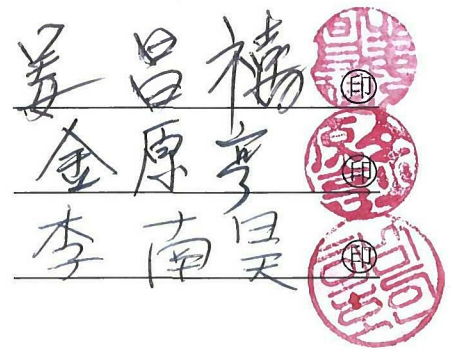 姜昌禧 印
金原亨 印
李南昊 印